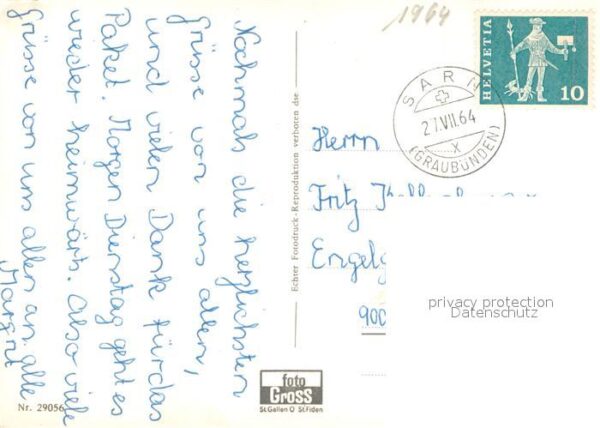 1964
HELVETIA
10
SARN
27.VII.64
X
(GRAUBÜNDEN)
Nochmals die herzlichsten
Grüsse von uns allen,
und vielen Dank für das
Paket. Morgen Dienstag geht es
wieder heimwärts. Also viele
Grüsse von uns allen an alle
Margrit
Echter Fotodruck-Reproduktion verboten dse
Herrn
Fritz
900
privacy protection
Datenschutz
foto
Gross
St.Gallen O St.Fiden
Nr. 29056